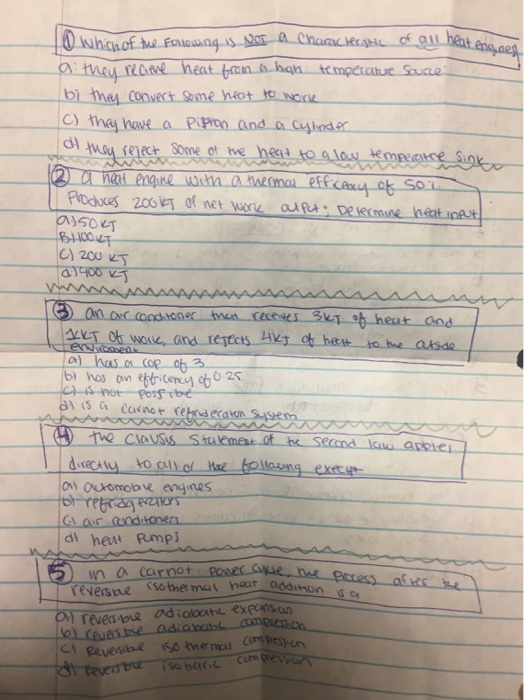 ① Which of the Following is NOT a characteristic of all heat engines
a. they recieve heat from a high temperature source
b) they convert some heat to work
c) they have a piston and a cylinder
d) they reject some of the heat to a low temperature sink
② a heat engine with a thermal efficency of 50%
Produces 200 kJ of net work output; Determine heat input
a) 50 kJ
B) 100 kJ
C) 200 kJ
d) 400 kJ
③ an air conditoner that receives 3kJ of heat and
1kJ of work, and rejects 4kJ of heat to the outside
enviroment
a) has a cop of 3
b) has an efficency of 0.25
c) is not possible
d) is a carnot refrideration system
④ the Clausus Statement of the second law applies
directly to all of the following except
a) automobile engines
b) refridgerators
c) air conditoners
d) heat pumps
⑤ in a carnot power cycle, the process after the
reversible isothermal heat addition is a
a) reversible adiabatic expansion
b) reversible adiabatic compression
c) Reversible isothermal compression
d) reversible isobaric compression